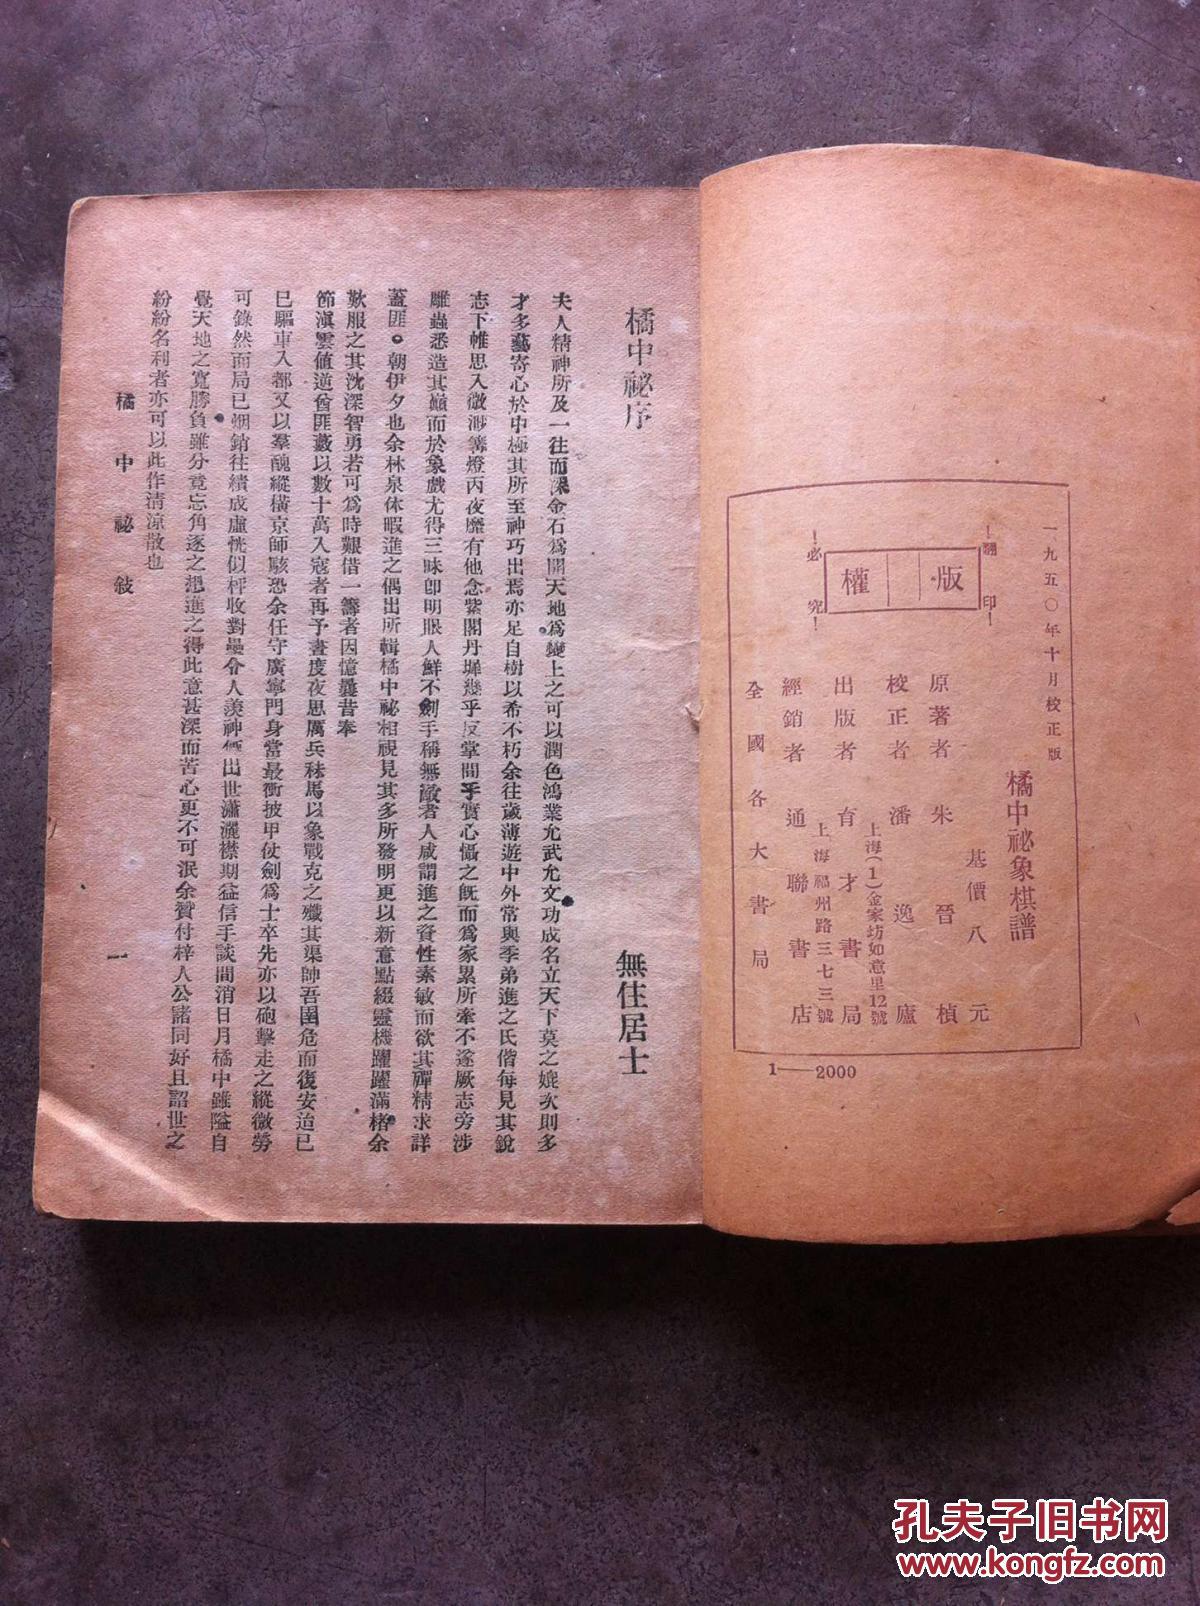 一九五〇年十月校正版
橘中祕象棋譜
基價八元
原著者 朱晉楨
校正者 潘逸廬
上海(1)金家坊如意里12號
出版者 育才書局
上海福州路三七三號
經銷者 通聯書店
全國各大書局
版權
翻印
必究
1—2000
橘中祕序
無住居士
夫人精神所及一往而深金石爲開天地爲變上之可以潤色鴻業允武允文功成名立天下莫之媲次則多
才多藝寄心於中極其所至神巧出焉亦足自樹以希不朽余往歲薄遊中外常與季弟進之氏偕每見其銳
志下帷思入微渺篝燈丙夜靡有他念紫閣丹墀幾乎反掌間乎實心懾之旣而爲家累所牽不遂厥志旁涉
雕蟲悉造其巔而於象戲尤得三昧卽明眼人鮮不劍手稱無敵者人咸謂進之資性素敏而欲其殫精求詳
蓋匪。朝伊夕也余林泉休暇進之偶出所輯橘中祕相視見其多所發明更以新意點綴靈機躍躍滿楮余
歎服之其沈深智勇若可爲時艱借一籌者因憶曩昔奉
節滇雲値逆酋匪藪以數十萬入寇者再予晝度夜思厲兵秣馬以象戰克之殲其渠帥吾圉危而復安迨已
巳驅車入都又以羣醜縱橫京師駭恐余任守廣寧門身當最衝披甲仗劍爲士卒先亦以砲擊走之縱微勞
可錄然而局已烟銷往績成虛恍似枰收對壘令人羨神僊出世瀟灑襟期益信手談間消日月橘中雖隘自
覺天地之寬勝負雖分竟忘角逐之想進之得此意甚深而苦心更不可泯余贊付梓人公諸同好且詔世之
紛紛名利者亦可以此作清凉散也
橘中祕敍
一
孔夫子旧书网
www.kongfz.com